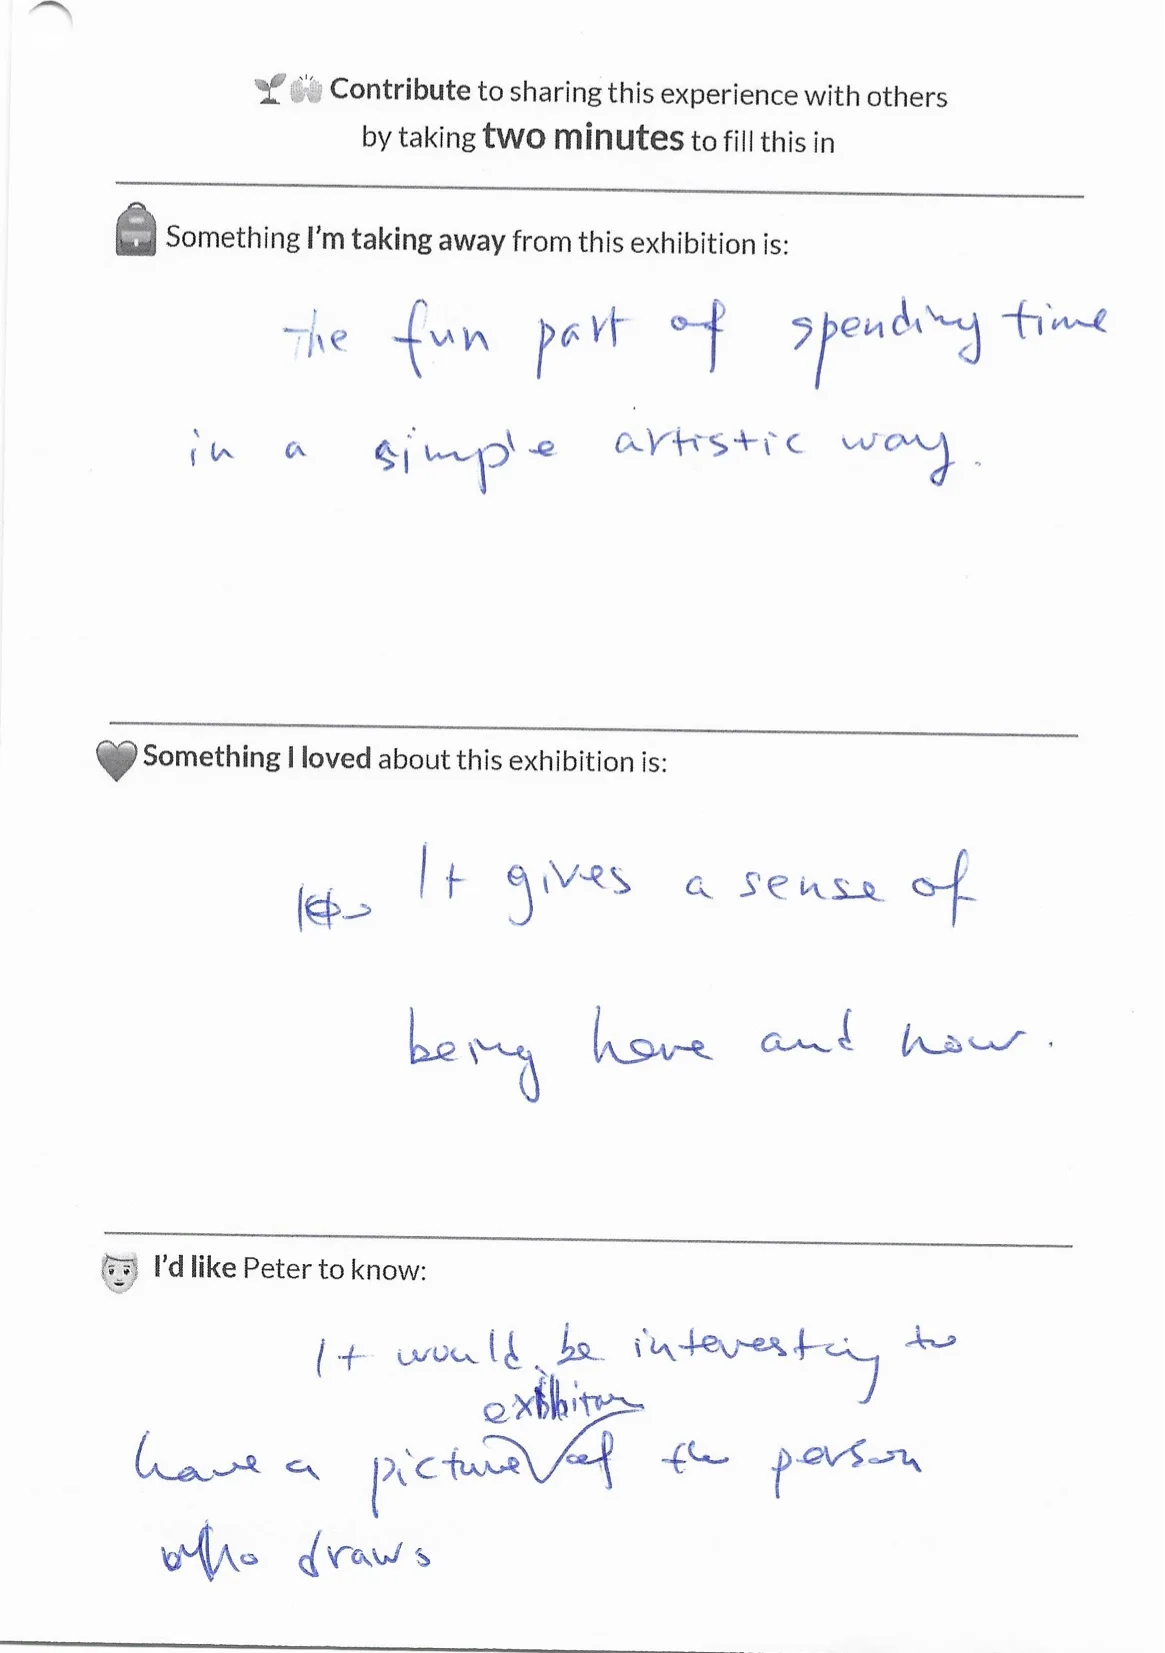 Contribute to sharing this experience with others
by taking two minutes to fill this in
Something I'm taking away from this exhibition is:
The fun part of spending time
in a simple artistic way.
Something I loved about this exhibition is:
It gives a sense of
being here and now.
I'd like Peter to know:
It would be interesting to
exhibiton
have a picture of the person
who draws